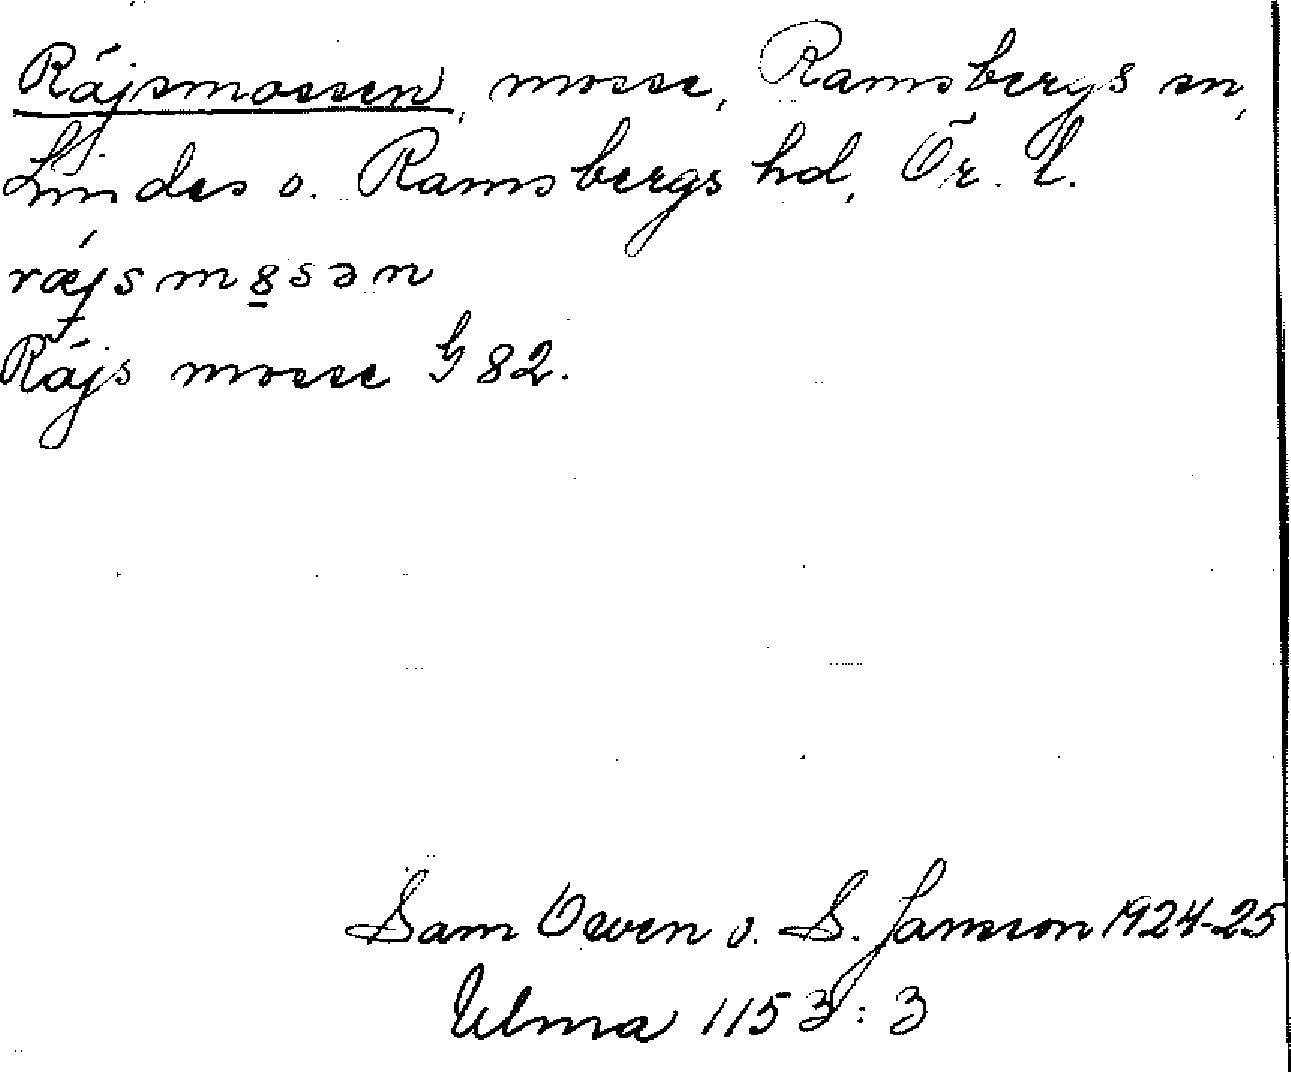 Räjsmossen, mosse, Ramsbergs sn,
Lindes o. Ramsbergs hd, Ör. l.
ræjsm8sən
Räjs mosse G 82.
Sam Owen o. S. Jansson 1924-25
Ulma 1153:3